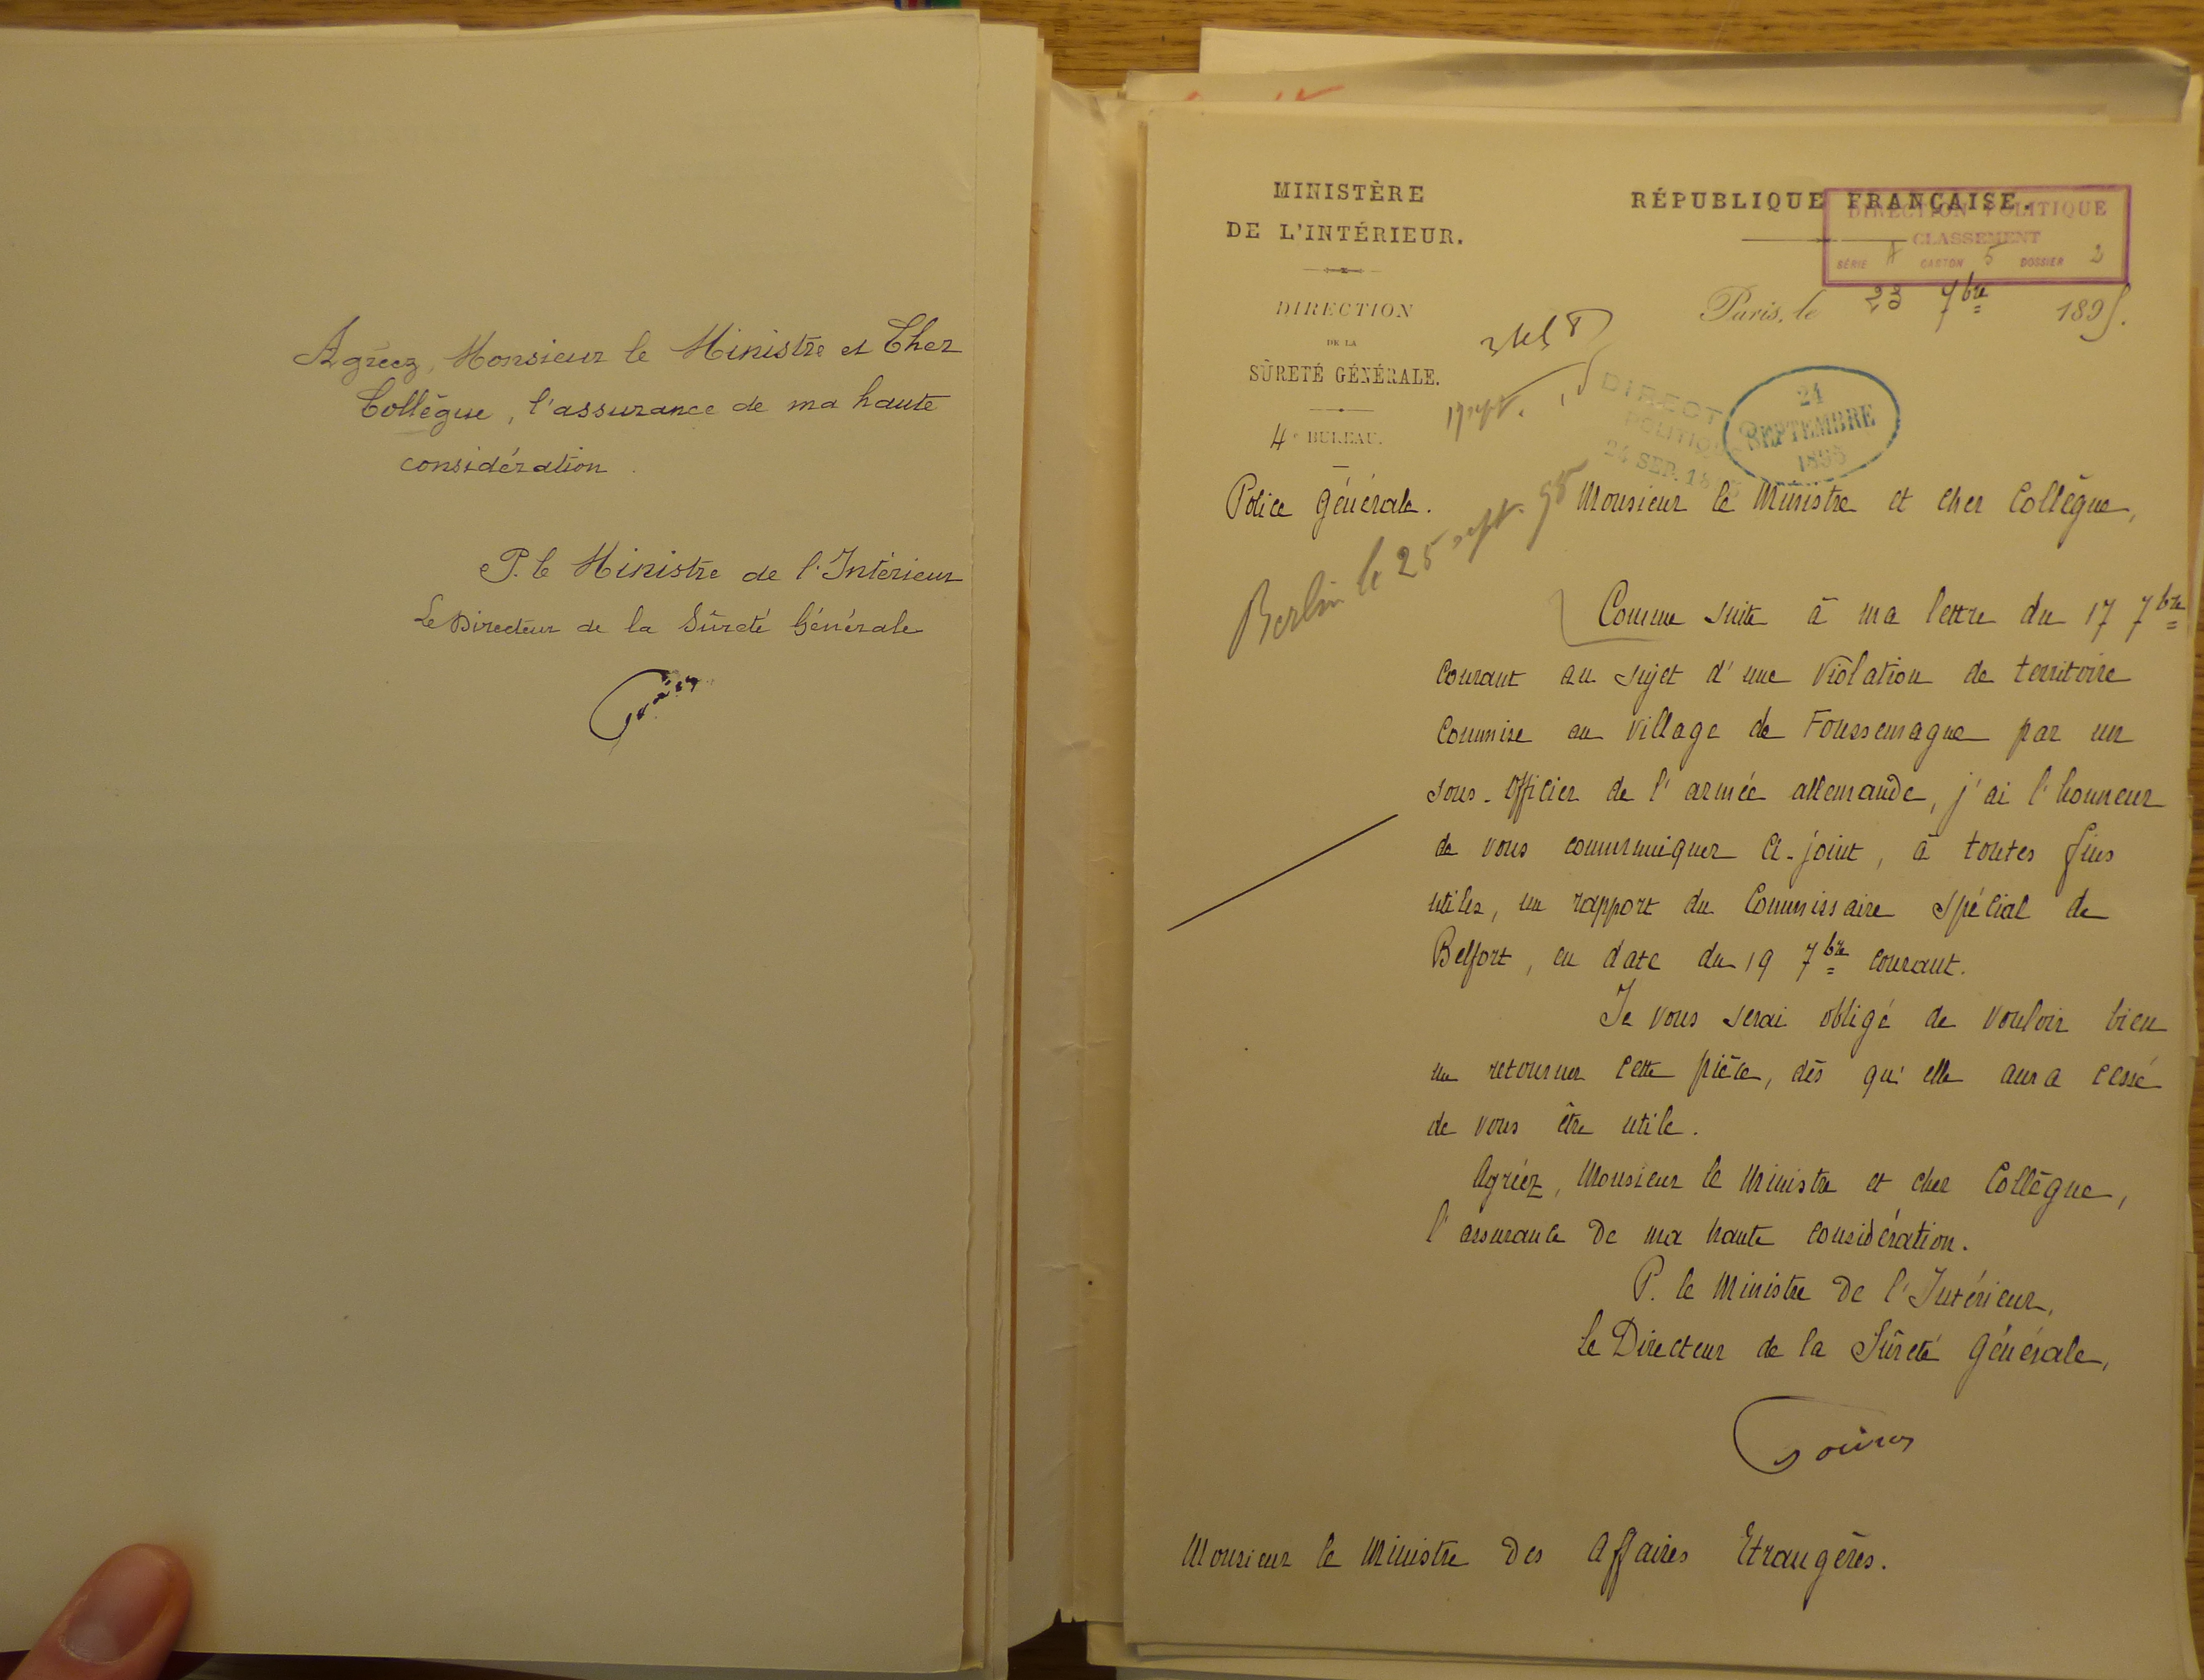 Agréez, Monsieur le Ministre et Cher
Collègue, l'assurance de ma haute
considération.
P. le Ministre de l'Intérieur
Le Directeur de la Sûreté Générale
MINISTÈRE
DE L'INTÉRIEUR.
DIRECTION
DE LA
SÛRETÉ GÉNÉRALE.
4e BUREAU.
Police Générale.
RÉPUBLIQUE FRANÇAISE.
DIRECTION POLITIQUE
CLASSEMENT
SÉRIE A CARTON 5 DOSSIER 2
Paris, le 23 7bre 1895.
17 sept.
DIRECT
POLITIQUE
24 SEP. 18
24
SEPTEMBRE
1895
Berlin le 25 sept. 95
Monsieur le Ministre et cher Collègue,
Comme suite à ma lettre du 17 7bre
courant au sujet d'une violation de territoire
commise au village de Foussemagne par un
sous-officier de l'armée allemande, j'ai l'honneur
de vous communiquer ci-joint, à toutes fins
utiles, un rapport du Commissaire spécial de
Belfort, en date du 19 7bre courant.
Je vous serai obligé de vouloir bien
me retourner cette pièce, dès qu'elle aura cessé
de vous être utile.
Agréez, Monsieur le Ministre et cher Collègue,
l'assurance de ma haute considération.
P. le Ministre de l'Intérieur,
Le Directeur de la Sûreté Générale,
Monsieur le Ministre des Affaires Etrangères.